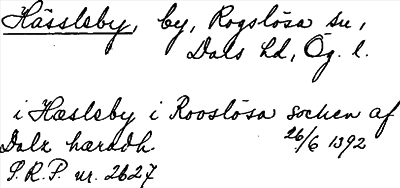 Hässleby, by, Rogslösa sn,
Dals hd, Ög. l.
i Hæsleby i Rooslösa sochen af
Dalx hæradh. 26/6 1392
S.R.P. nr. 2627